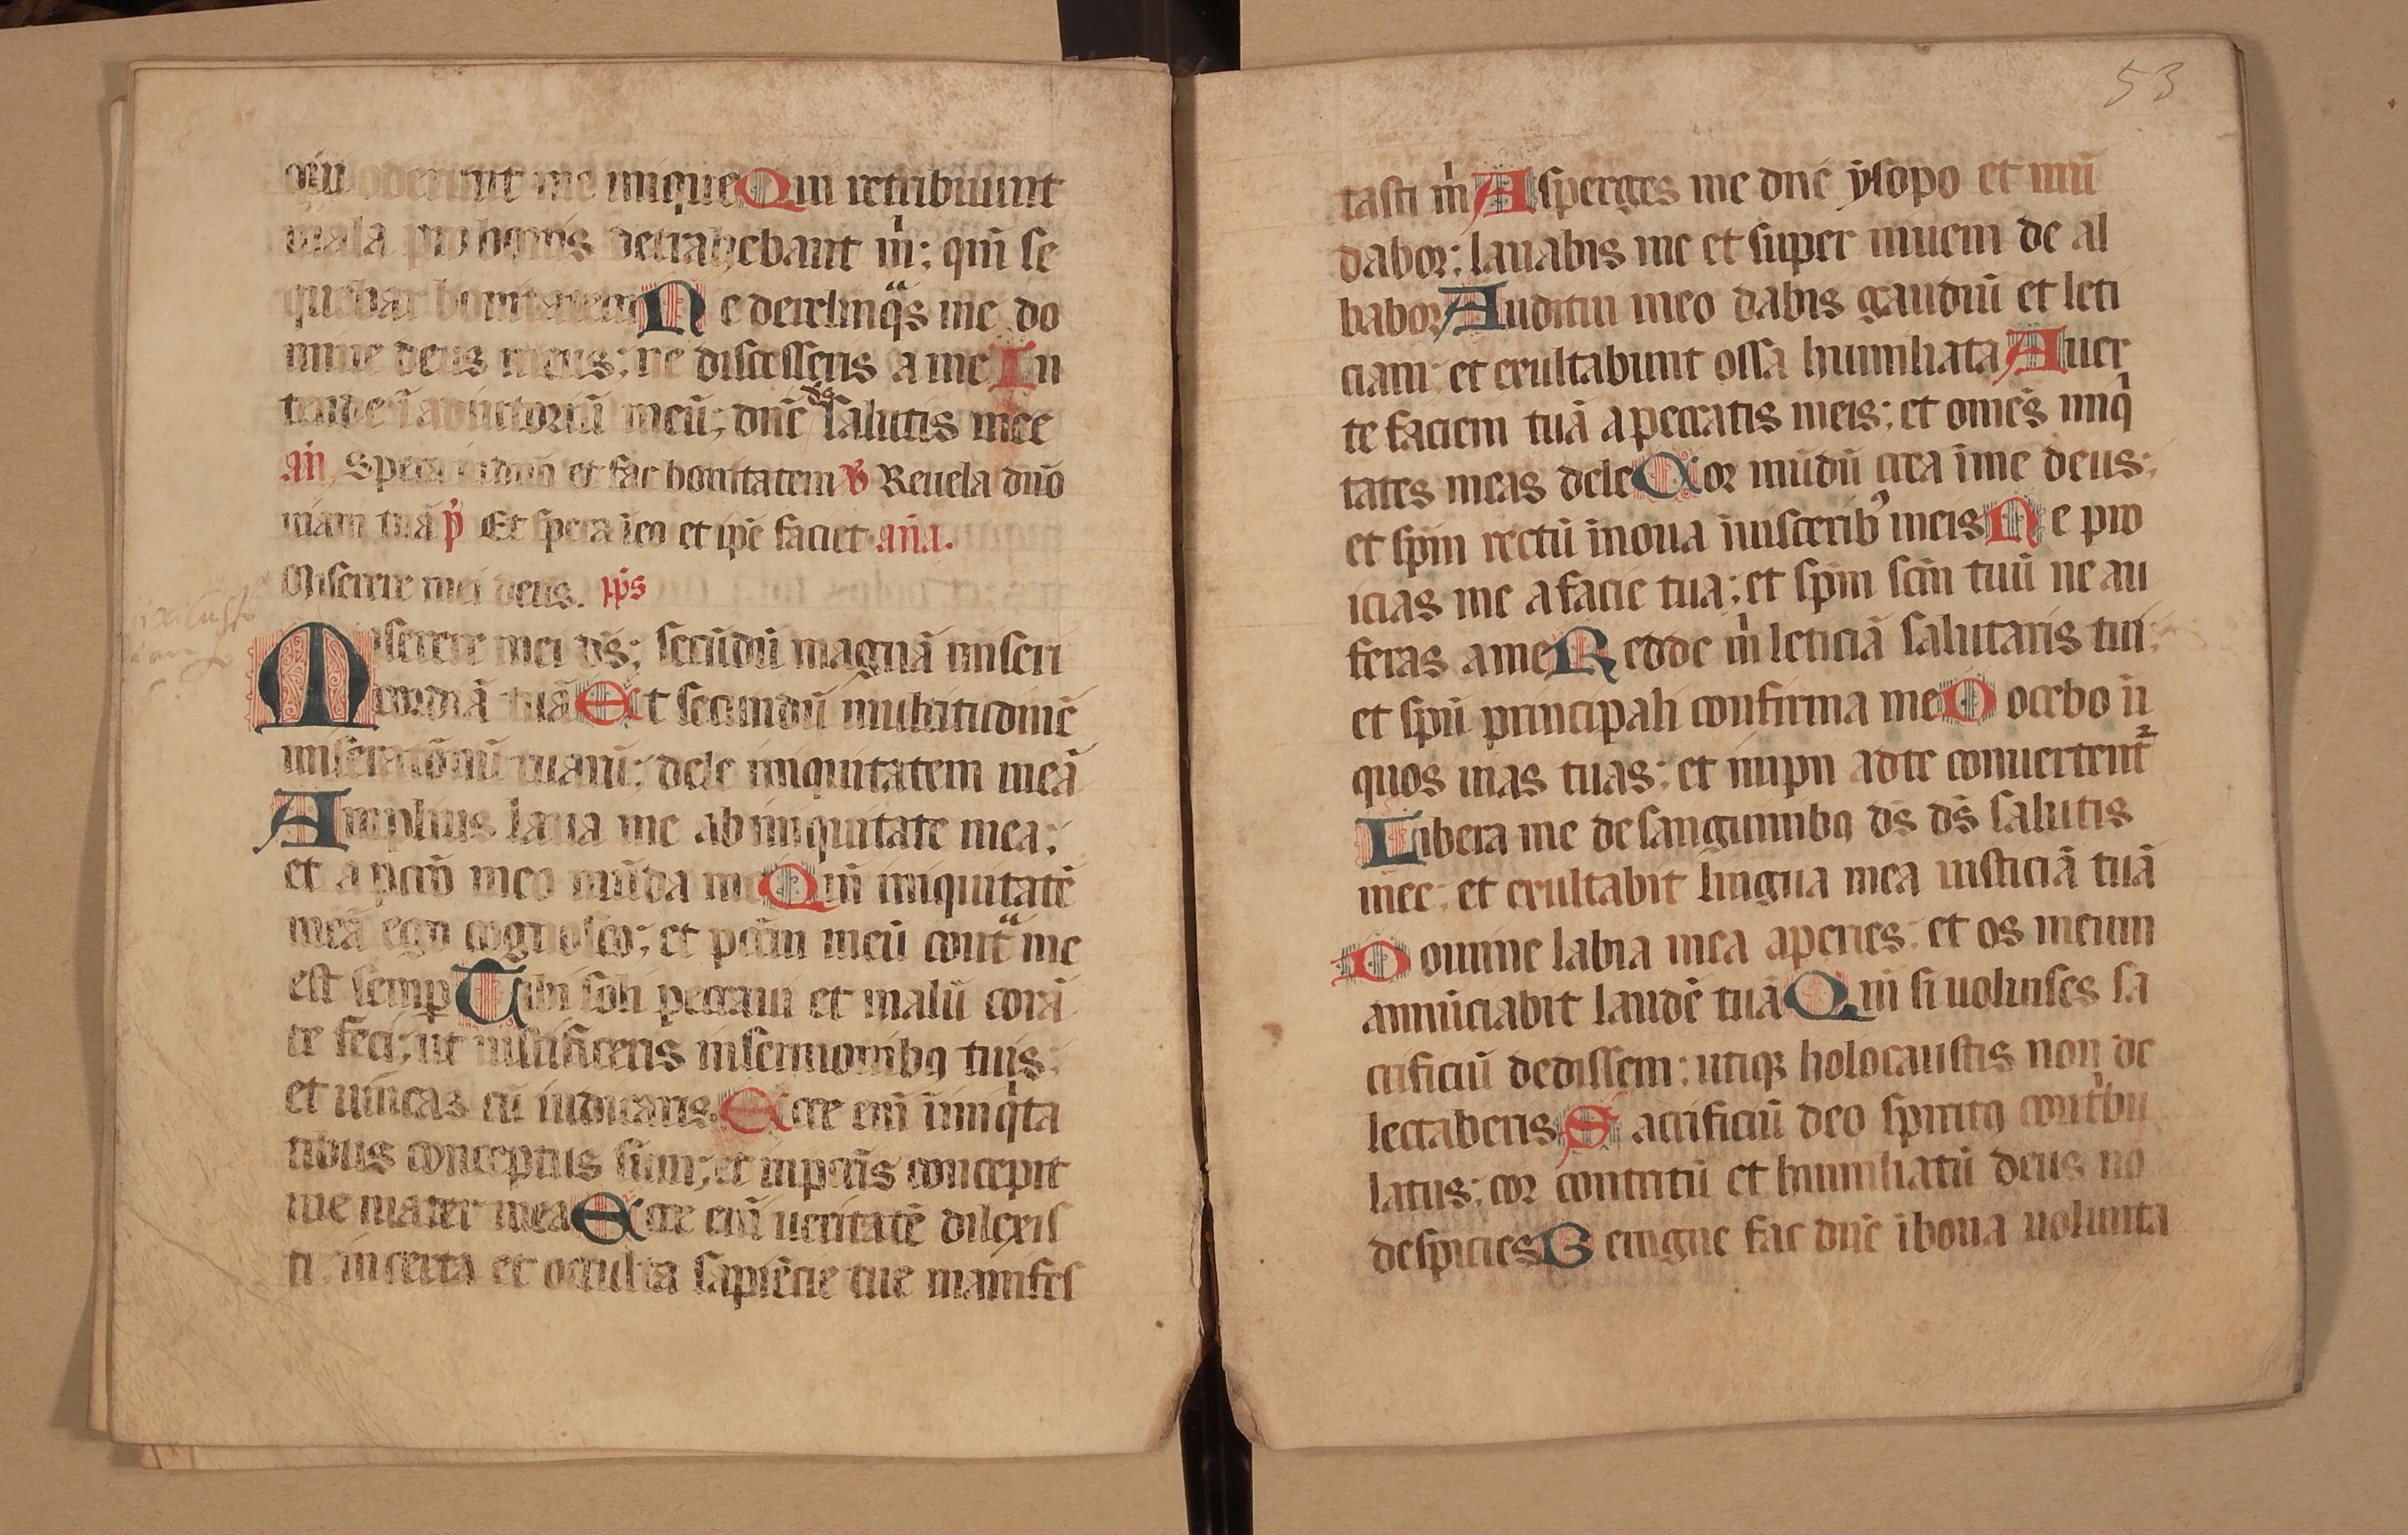 qui oderunt me inique Qui retribuunt
mala pro bonis detrahebant m̄; qm̄ se
quebar bonitatem Ne derelinqᵃs me do
mine deus meus; ne discesseris a me In
tende ī adiutoriū meū; dn̄e ds̄ salutis mee
an̄ Spera in dn̄o et fac bonitatem v̄ Reuela dn̄o
uiam tuā p̄ Et spera ī eo et ip̄e faciet an̄a.
Miserere mei deus. pp̄s
Miserere mei ds̄; secūdū magnā miseri
cordiā tuā Et secundū multitudinē
miseratōnū tuarū; dele iniquitatem meā
Amplius laua me ab iniquitate mea;
et a pcc̄o meo mūda me Qm̄ iniquitatē
meā ego cognosco; et pcc̄m meū contᵃ me
est semꝑ Tibi soli peccaui et malū corā
te feci; ut iustificeris in sermonibꝯ tuis;
et uincas cū iudicaris. Ecce em̄ ī iniqⁱta
tibus conceptus sum; et in pcc̄is concepit
me mater mea Ecce em̄ ueritatē dilexis
ti. incerta et occulta sapiēcie tue manifes
53
tasti m̄ Asperges me dn̄e ysopo et mū
dabor; lauabis me et super niuem de al
babor Auditui meo dabis gaudiū et leti
ciam; et exultabunt ossa humiliata Auer
te faciem tuā a peccatis meis; et om̄es iniqⁱ
tates meas dele Cor mūdū crea ī me deus;
et sp̄m rectū inoua ī uiscerib⁹ meis Ne pro
icias me a facie tua; et sp̄m scm̄ tuū ne au
feras a me Redde m̄ leticiā salutaris tui;
et sp̄u principali confirma me Docebo ī
quos uias tuas; et impii ad te conuertent᷑
Libera me de sanguinibꝯ ds̄ ds̄ salutis
mee; et exultabit lingua mea iusticiā tuā
Domine labia mea aperies; et os meum
annūciabit laudē tuā Qm̄ si uoluises sa
crificiū dedissem; utiqꝫ holocaustis non de
lectaberis Sacrificiū deo spiritꝯ contⁱbu
latus; cor contritū et humiliatū deus nō
despicies Benigne fac dn̄e ī bona uolunta